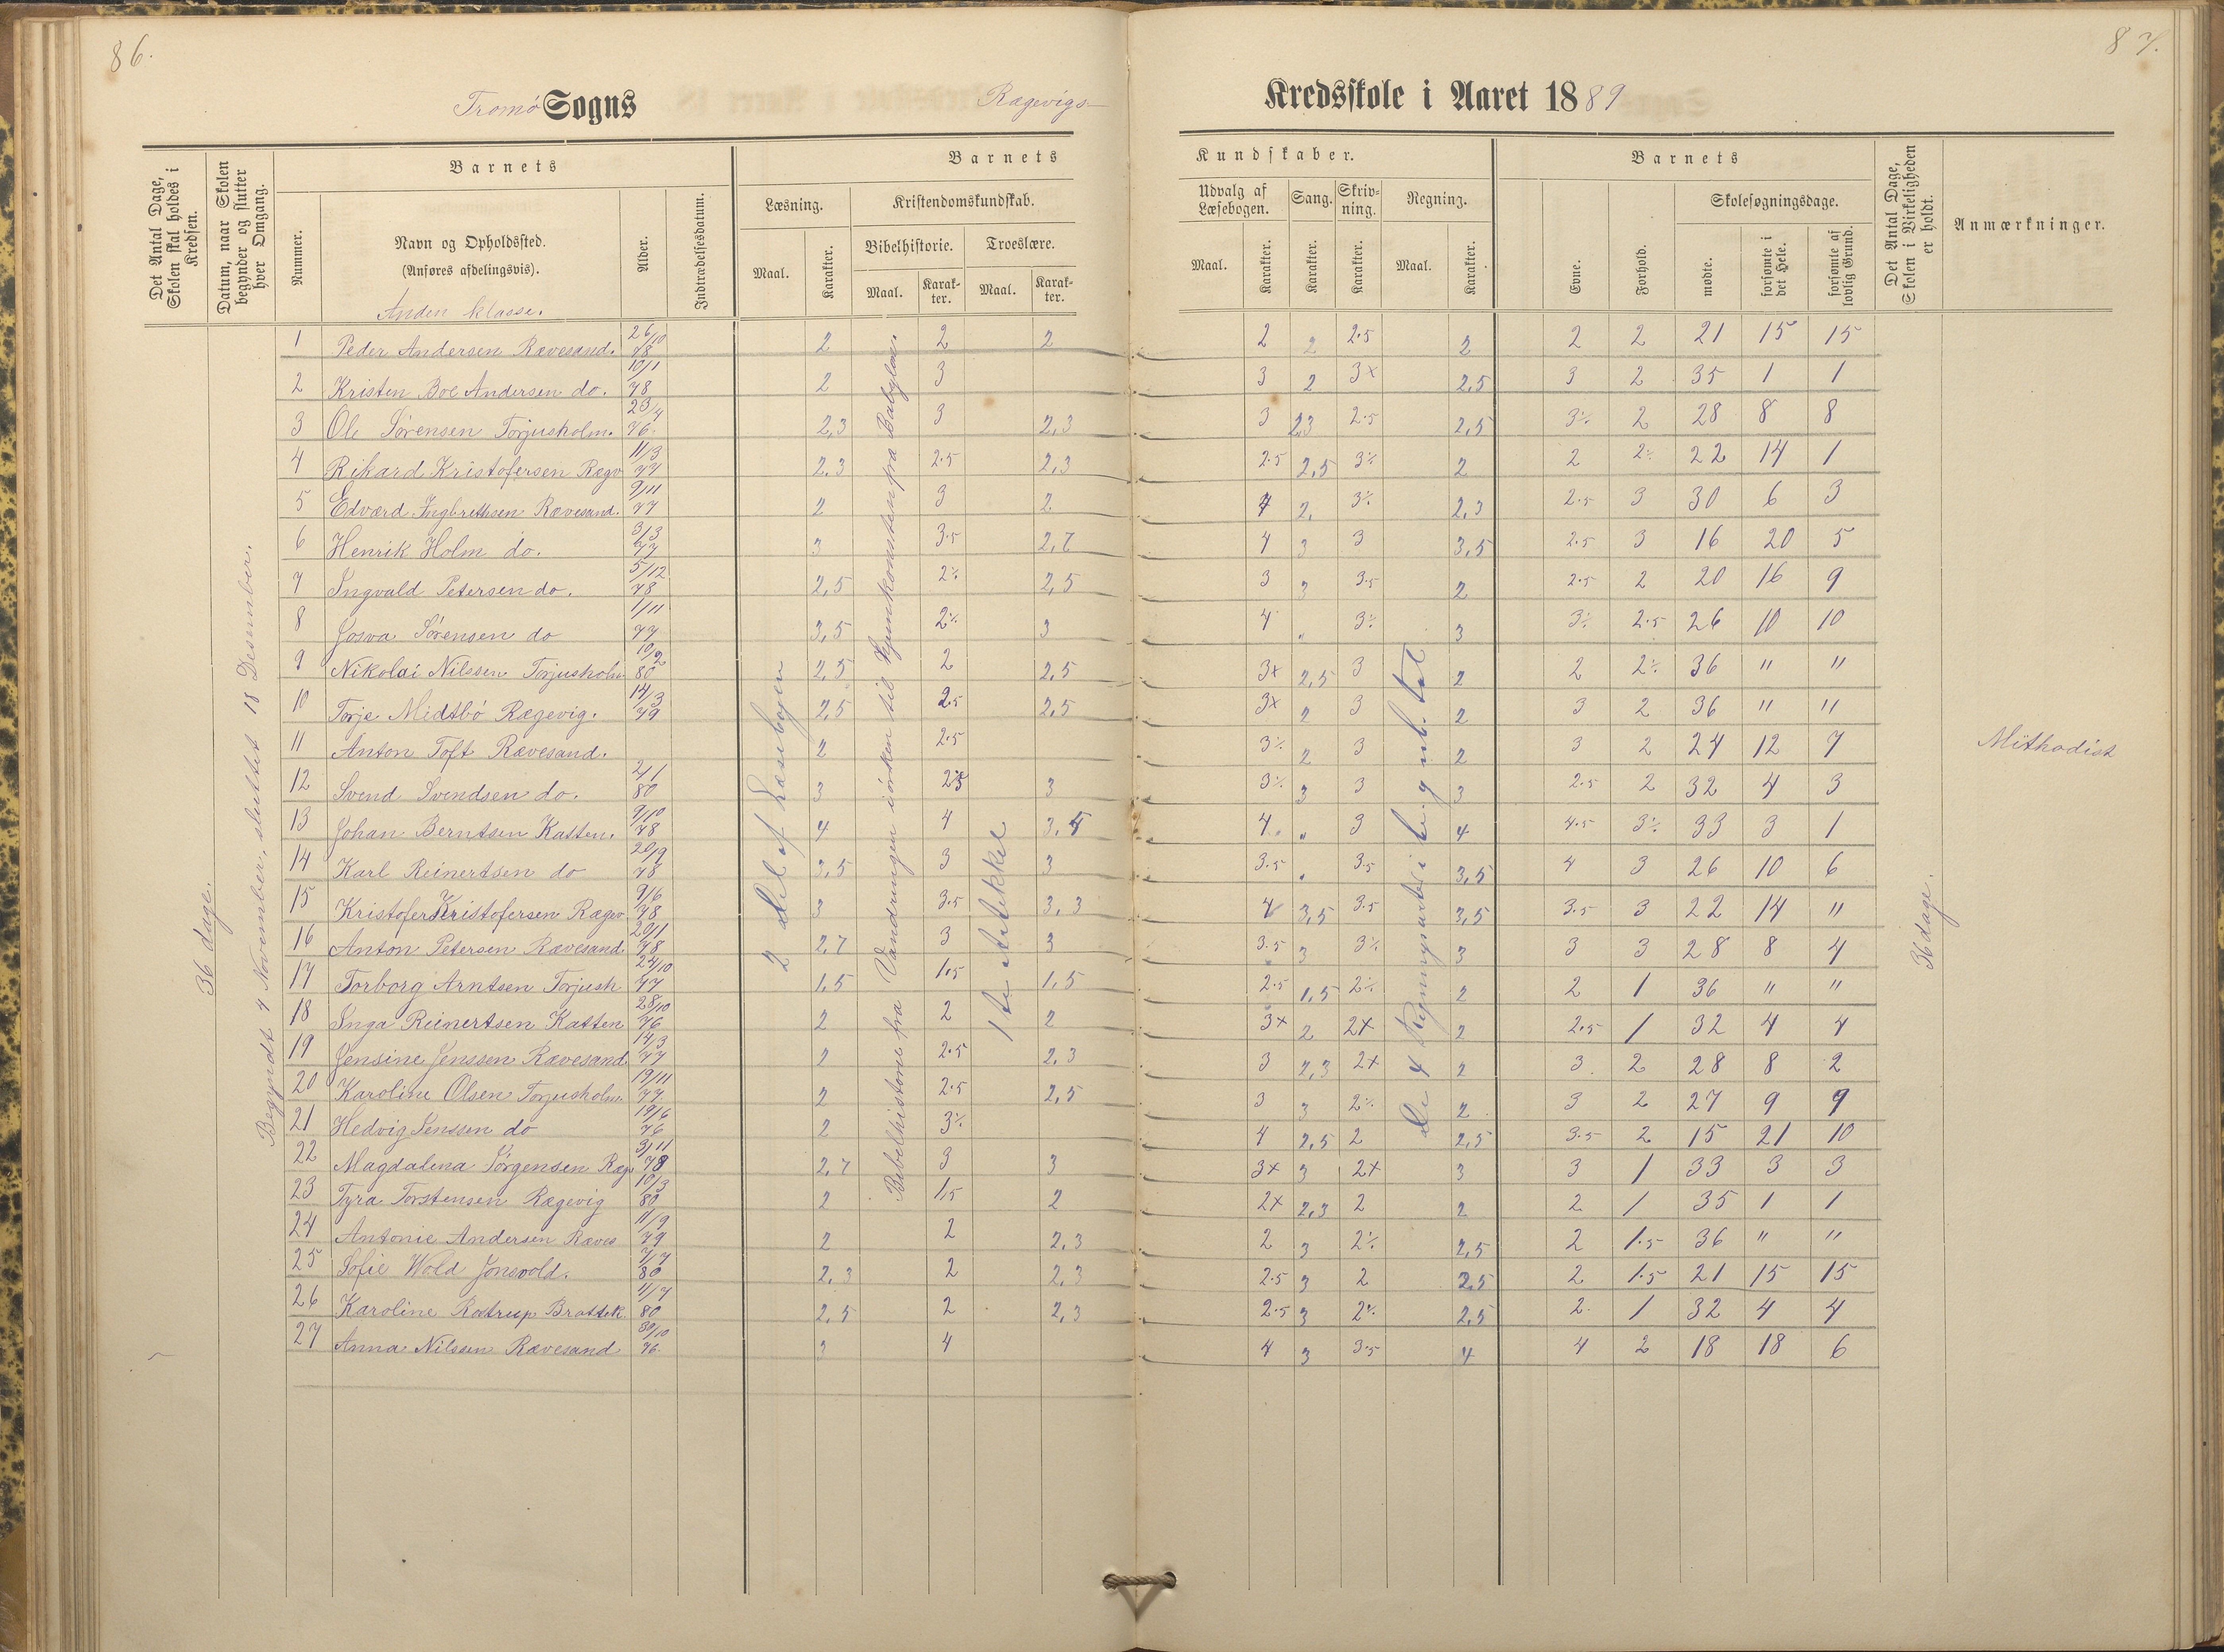 86.
87.
Tromø Sogns Rægevigs Kredsskole i Aaret 1889
Det Antal Dage, Skolen skal holdes i Kredsen.
Datum, naar Skolen begynder og slutter hver Omgang.
Barnets
Nummer.
Navn og Opholdssted.
(Anføres afdelingsvis).
Anden klasse.
Alder.
Indtrædelsesdatum.
Barnets Kundskaber.
Læsning.
Maal.
Karakter.
Kristendomskundskab.
Bibelhistorie.
Maal.
Karakter.
Troeslære.
Maal.
Karakter.
Udvalg af Læsebogen.
Maal.
Karakter.
Sang.
Karakter.
Skrivning.
Karakter.
Regning.
Maal.
Karakter.
Barnets
Evne.
Forhold.
Skolesøgningsdage.
mødte.
forsømte i det Hele.
forsømte af lovlig Grund.
Det Antal Dage, Skolen i Virkeligheden er holdt.
Anmærkninger.
36 dage.
Begyndt 4 November, sluttet 18 Desember.
2 del af Læsebogen
Bibelhistorie fra Vandringen i örken til Hjemkomsten fra Babylon.
1ste Artikkel
De 4 Regningsarter i hel og ubl. tal
36 dage.
1 Peder Andersen Rævesand. 26/10 78 2 2 2 2 2 2.5 2 2 2 21 15 15
2 Kristen Boe Andersen do. 10/1 78 2 3 3 2 3x 2,5 3 2 35 1 1
3 Ole Sørensen Torjusholm. 23/4 76. 2,3 3 2,3 3 2,3 2.5 2,5 3·/. 2 28 8 8
4 Rikard Kristofersen Rægv 11/3 77 2,3 2.5 2,3 2.5 2,5 3·/. 2 2 2·/. 22 14 1
5 Edvard Ingbrethsen Rævesand. 9/11 77 2 3 2 4 2, 3·/. 2,3 2.5 3 30 6 3
6 Henrik Holm do. 3/3 77 3 3.5 2,7 4 3 3 3,5 2.5 3 16 20 5
7 Ingvald Petersen do. 5/12 78 2,5 2·/. 2,5 3 3 3.5 2 2.5 2 20 16 9
8 Josva Sørensen do 1/11 77 3,5 2·/. 3 4 " 3·/. 3 3·/. 2.5 26 10 10
9 Nikolai Nilssen Torjusholm 10/2 80 2,5 2 2,5 3x 2,5 3 2 2 2·/. 36 " "
10 Torje Midtbö Rægevig. 14/3 79 2,5 2.5 2,5 3x 2 3 2 3 2 36 " "
11 Anton Toft Rævesand. 2 2.5 3·/. 2 3 2 3 2 24 12 7 Mithodist
12 Svend Svendsen do. 2/1 80 3 2.5 3 3·/. 3 3 3 2.5 2 32 4 3
13 Johan Berntsen Katten. 9/10 78 4 4 3,5 4. " 3 4 4.5 3·/. 33 3 1
14 Karl Reinertsen do 20/9 78 3,5 3 3 3.5 " 3.5 3,5 4 3 26 10 6
15 Kristofer Kristofersen Rægev 9/6 78 3 3.5 3,3 4 3,5 3.5 3,5 3.5 3 22 14 "
16 Anton Petersen Rævesand 20/1 78 2,7 3 3 3.5 3 3·/. 3 3 3 28 8 4
17 Torborg Arntsen Torjush 24/10 77 1,5 1.5 1,5 2.5 1,5 2·/. 2 2 1 36 " "
18 Inga Reinertsen Katten 28/10 76 2 2 2 3x 2 2x 2 2.5 1 32 4 4
19 Jensine Jenssen Rævesand 14/3 77 2 2.5 2,3 3 2,3 2x 2 3. 2 28 8 2
20 Karoline Olsen Torjusholm 19/11 77. 2 2.5 2,5 3 3 2·/. 2 3 2 27 9 9
21 Hedvig Jenssen do 19/6 76 2 3·/. 4 2,5 2 2,5 3.5 2 15 21 10
22 Magdalena Jørgensen Ræg 3/11 78 2,7 3 3 3x 3 2x 3 3 1 33 3 3
23 Tyra Torstensen Rægevig 10/3 80 2 1.5 2 2x 2,3 2 2 2 1 35 1 1
24 Antonie Andersen Ræves 11/9 79 2 2 2,3 2 3 2·/. 2,5 2 1.5 36 " "
25 Sofie Wold Jonsvold. 7/7 80 2,3 2 2,3 2.5 3 2 2,5 2 1.5 21 15 15
26 Karoline Rostrup Brattek. 11/7 80 2,5 2 2,3 2.5 3 2·/. 2,5 2. 1 32 4 4
27 Anna Nilssen Rævesand 30/10 76. 3 4 4 3 3.5 4 4 2 18 18 6